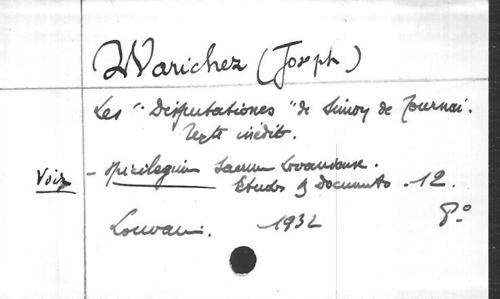 Warichez (Joseph)
Les "Disputationes" de Simon de Tournai.
Texte inédit.
Voir - Spicilegium Sacrum Lovaniense.
Etudes & Documents. 12.
Louvain. 1932 8°